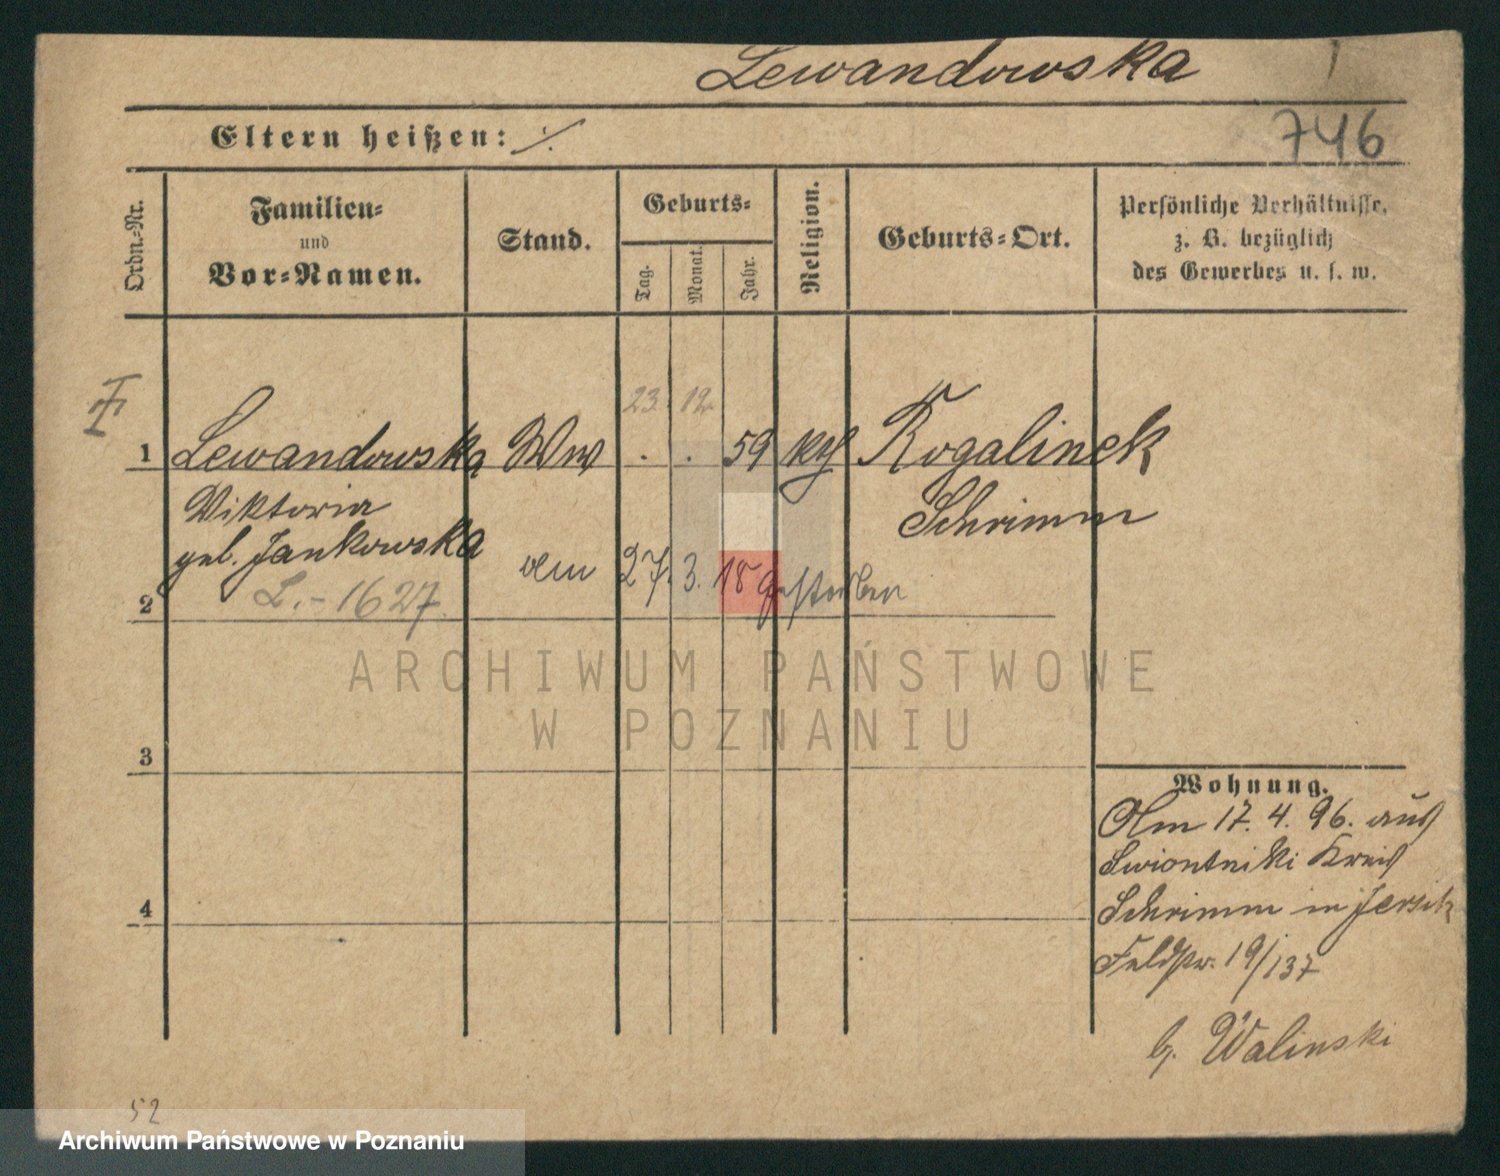 Lewandowska
746
Eltern heißen: ·/.
Ordn.-Nr.
Familien-
und
Vor-Namen.
Stand.
Geburts-
Tag.
Monat.
Jahr.
Religion.
Geburts-Ort.
Persönliche Verhältnisse,
z. B. bezüglich
des Gewerbes u. s. w.
23. 12.
1 Lewandowska Ww . . 59 kth Rogalinek
Viktoria Schrimm
geb. Jankowska
den 27. 3. 18 gestorben
2 L.-1627.
ARCHIWUM PAŃSTWOWE
W POZNANIU
3
Wohnung.
Am 17. 4. 96. aus
Swiontniki Kreis
Schrimm in Jersitz
Feldstr. 19/137
4
b. Walinski
52
Archiwum Państwowe w Poznaniu